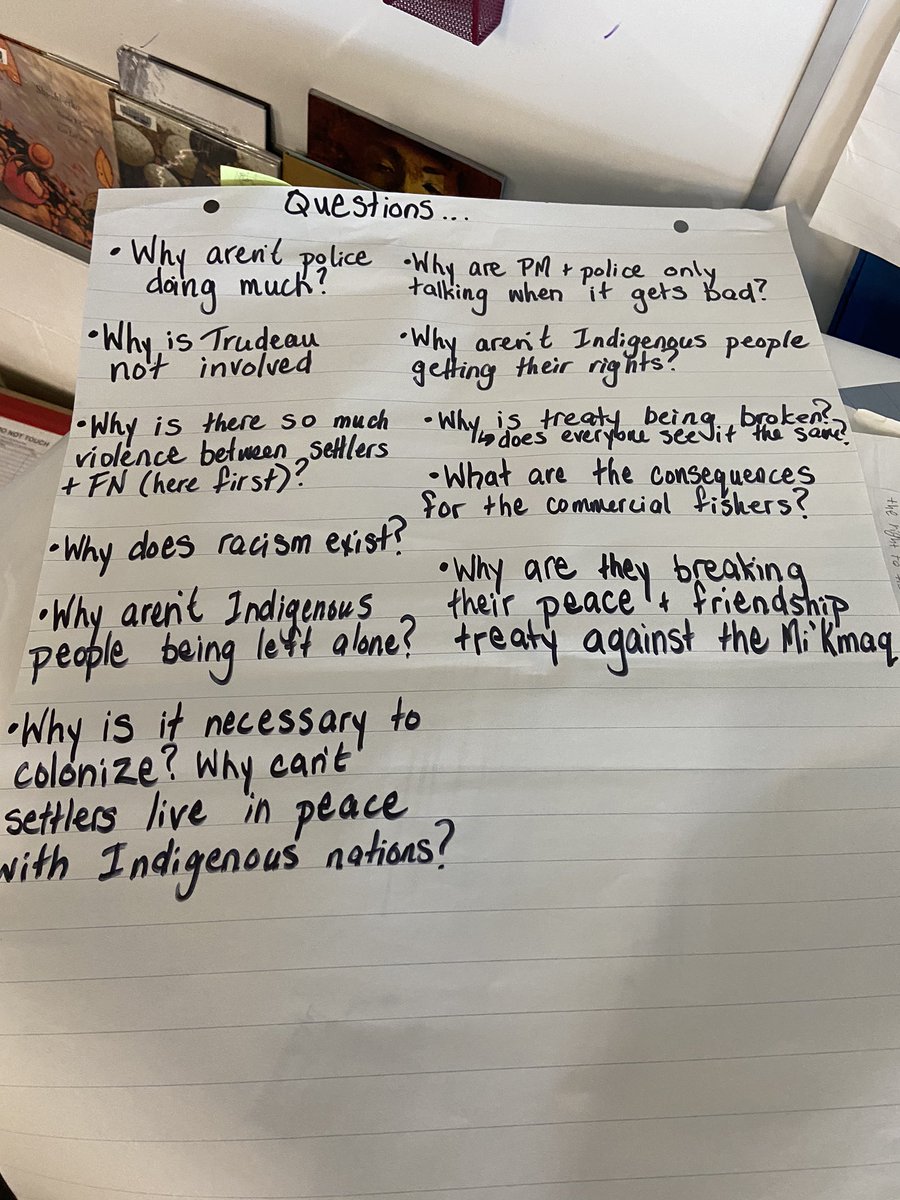 Questions...
• Why aren't police
doing much?
• Why is Trudeau
not involved
• Why is there so much
violence between settlers
+ FN (here first)?
• Why does racism exist?
• Why aren't Indigenous
people being left alone?
• Why is it necessary to
colonize? Why can't
settlers live in peace
with Indigenous nations?
• Why are PM + police only
talking when it gets bad?
• Why aren't Indigenous people
getting their rights?
• Why is treaty being broken?
↳ does everyone see it the same?
• What are the consequences
for the commercial fishers?
• Why are they breaking
their peace + friendship
treaty against the Mi'kmaq
DO NOT TOUCH
the right to